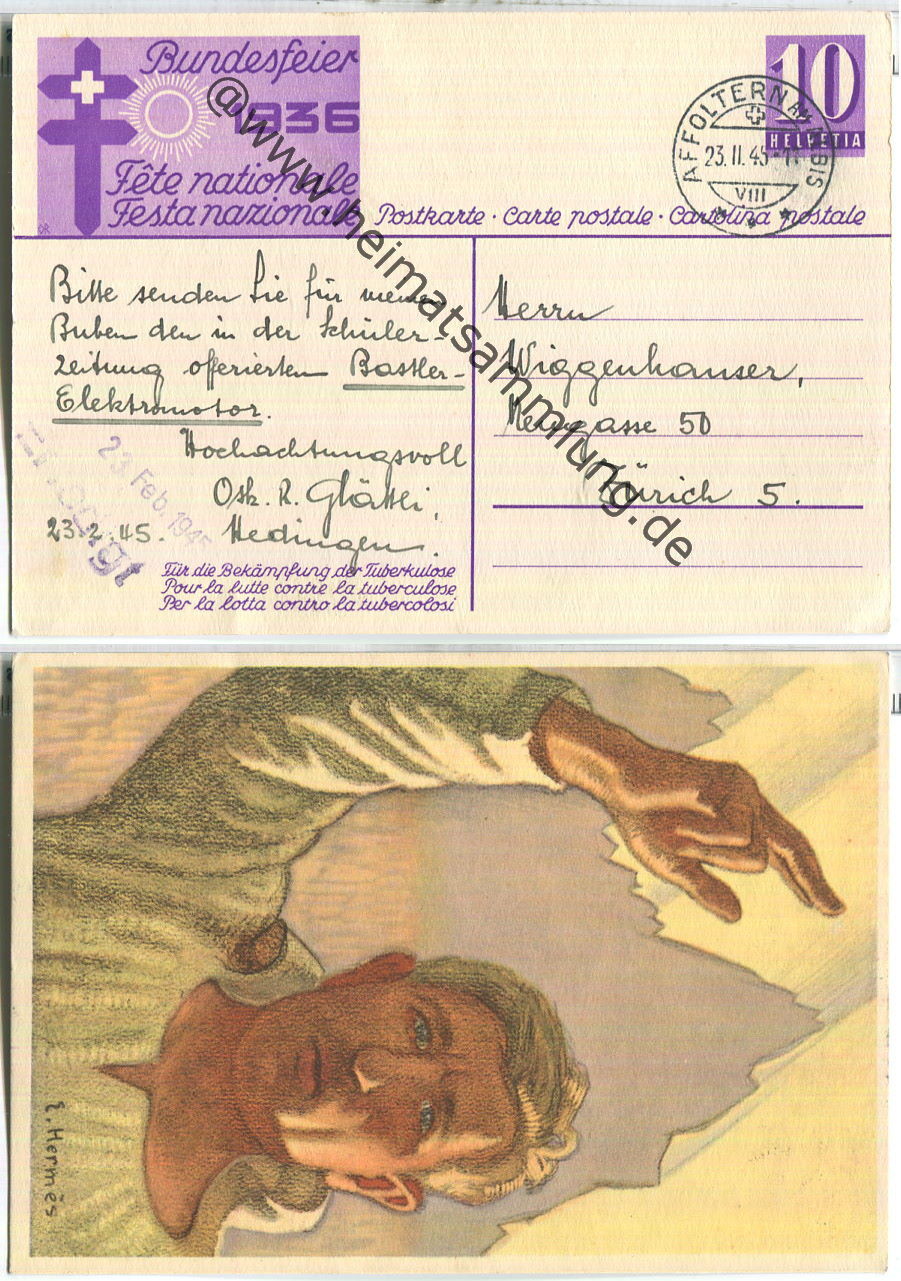 Bundesfeier
1936
Fête nationale
Festa nazionale
Postkarte · Carte postale · Cartolina postale
10
HELVETIA
AFFOLTERN A. ALBIS
23. II. 45
VIII
Bitte senden Sie für meine
Buben den in der Schüler-
zeitung offerierten Bastler-
Elektromotor.
Hochachtungsvoll
Osk. R. Glättli,
23.2.45. Hedingen.
23. Feb. 1945
Für die Bekämpfung der Tuberkulose
Pour la lutte contre la tuberculose
Per la lotta contro la tubercolosi
Herrn
Wiggenhauser,
Neugasse 50
Zürich 5.
@www.heimatsammlung.de
E. Hermès